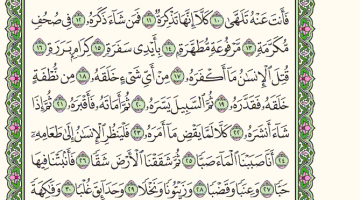 فَأَنتَ عَنْهُ تَلَهَّىٰ ١٠ كَلَّا إِنَّهَا تَذْكِرَةٌ ١١ فَمَن شَاءَ ذَكَرَهُۥ ١٢ فِي صُحُفٍ
مُّكَرَّمَةٍ ١٣ مَّرْفُوعَةٍ مُّطَهَّرَةٍۭ ١٤ بِأَيْدِي سَفَرَةٍ ١٥ كِرَامٍۭ بَرَرَةٍ ١٦
قُتِلَ ٱلْإِنسَٰنُ مَآ أَكْفَرَهُۥ ١٧ مِنْ أَيِّ شَيْءٍ خَلَقَهُۥ ١٨ مِن نُّطْفَةٍ
خَلَقَهُۥ فَقَدَّرَهُۥ ١٩ ثُمَّ ٱلسَّبِيلَ يَسَّرَهُۥ ٢٠ ثُمَّ أَمَاتَهُۥ فَأَقْبَرَهُۥ ٢١ ثُمَّ إِذَا
شَآءَ أَنشَرَهُۥ ٢٢ كَلَّا لَمَّا يَقْضِ مَآ أَمَرَهُۥ ٢٣ فَلْيَنظُرِ ٱلْإِنسَٰنُ إِلَىٰ طَعَامِهِۦٓ
٢٤ أَنَّا صَبَبْنَا ٱلْمَآءَ صَبًّا ٢٥ ثُمَّ شَقَقْنَا ٱلْأَرْضَ شَقًّا ٢٦ فَأَنۢبَتْنَا فِيهَا
حَبًّا ٢٧ وَعِنَبًا وَقَضْبًا ٢٨ وَزَيْتُونًا وَنَخْلًا ٢٩ وَحَدَآئِقَ غُلْبًا ٣٠ وَفَٰكِهَةً